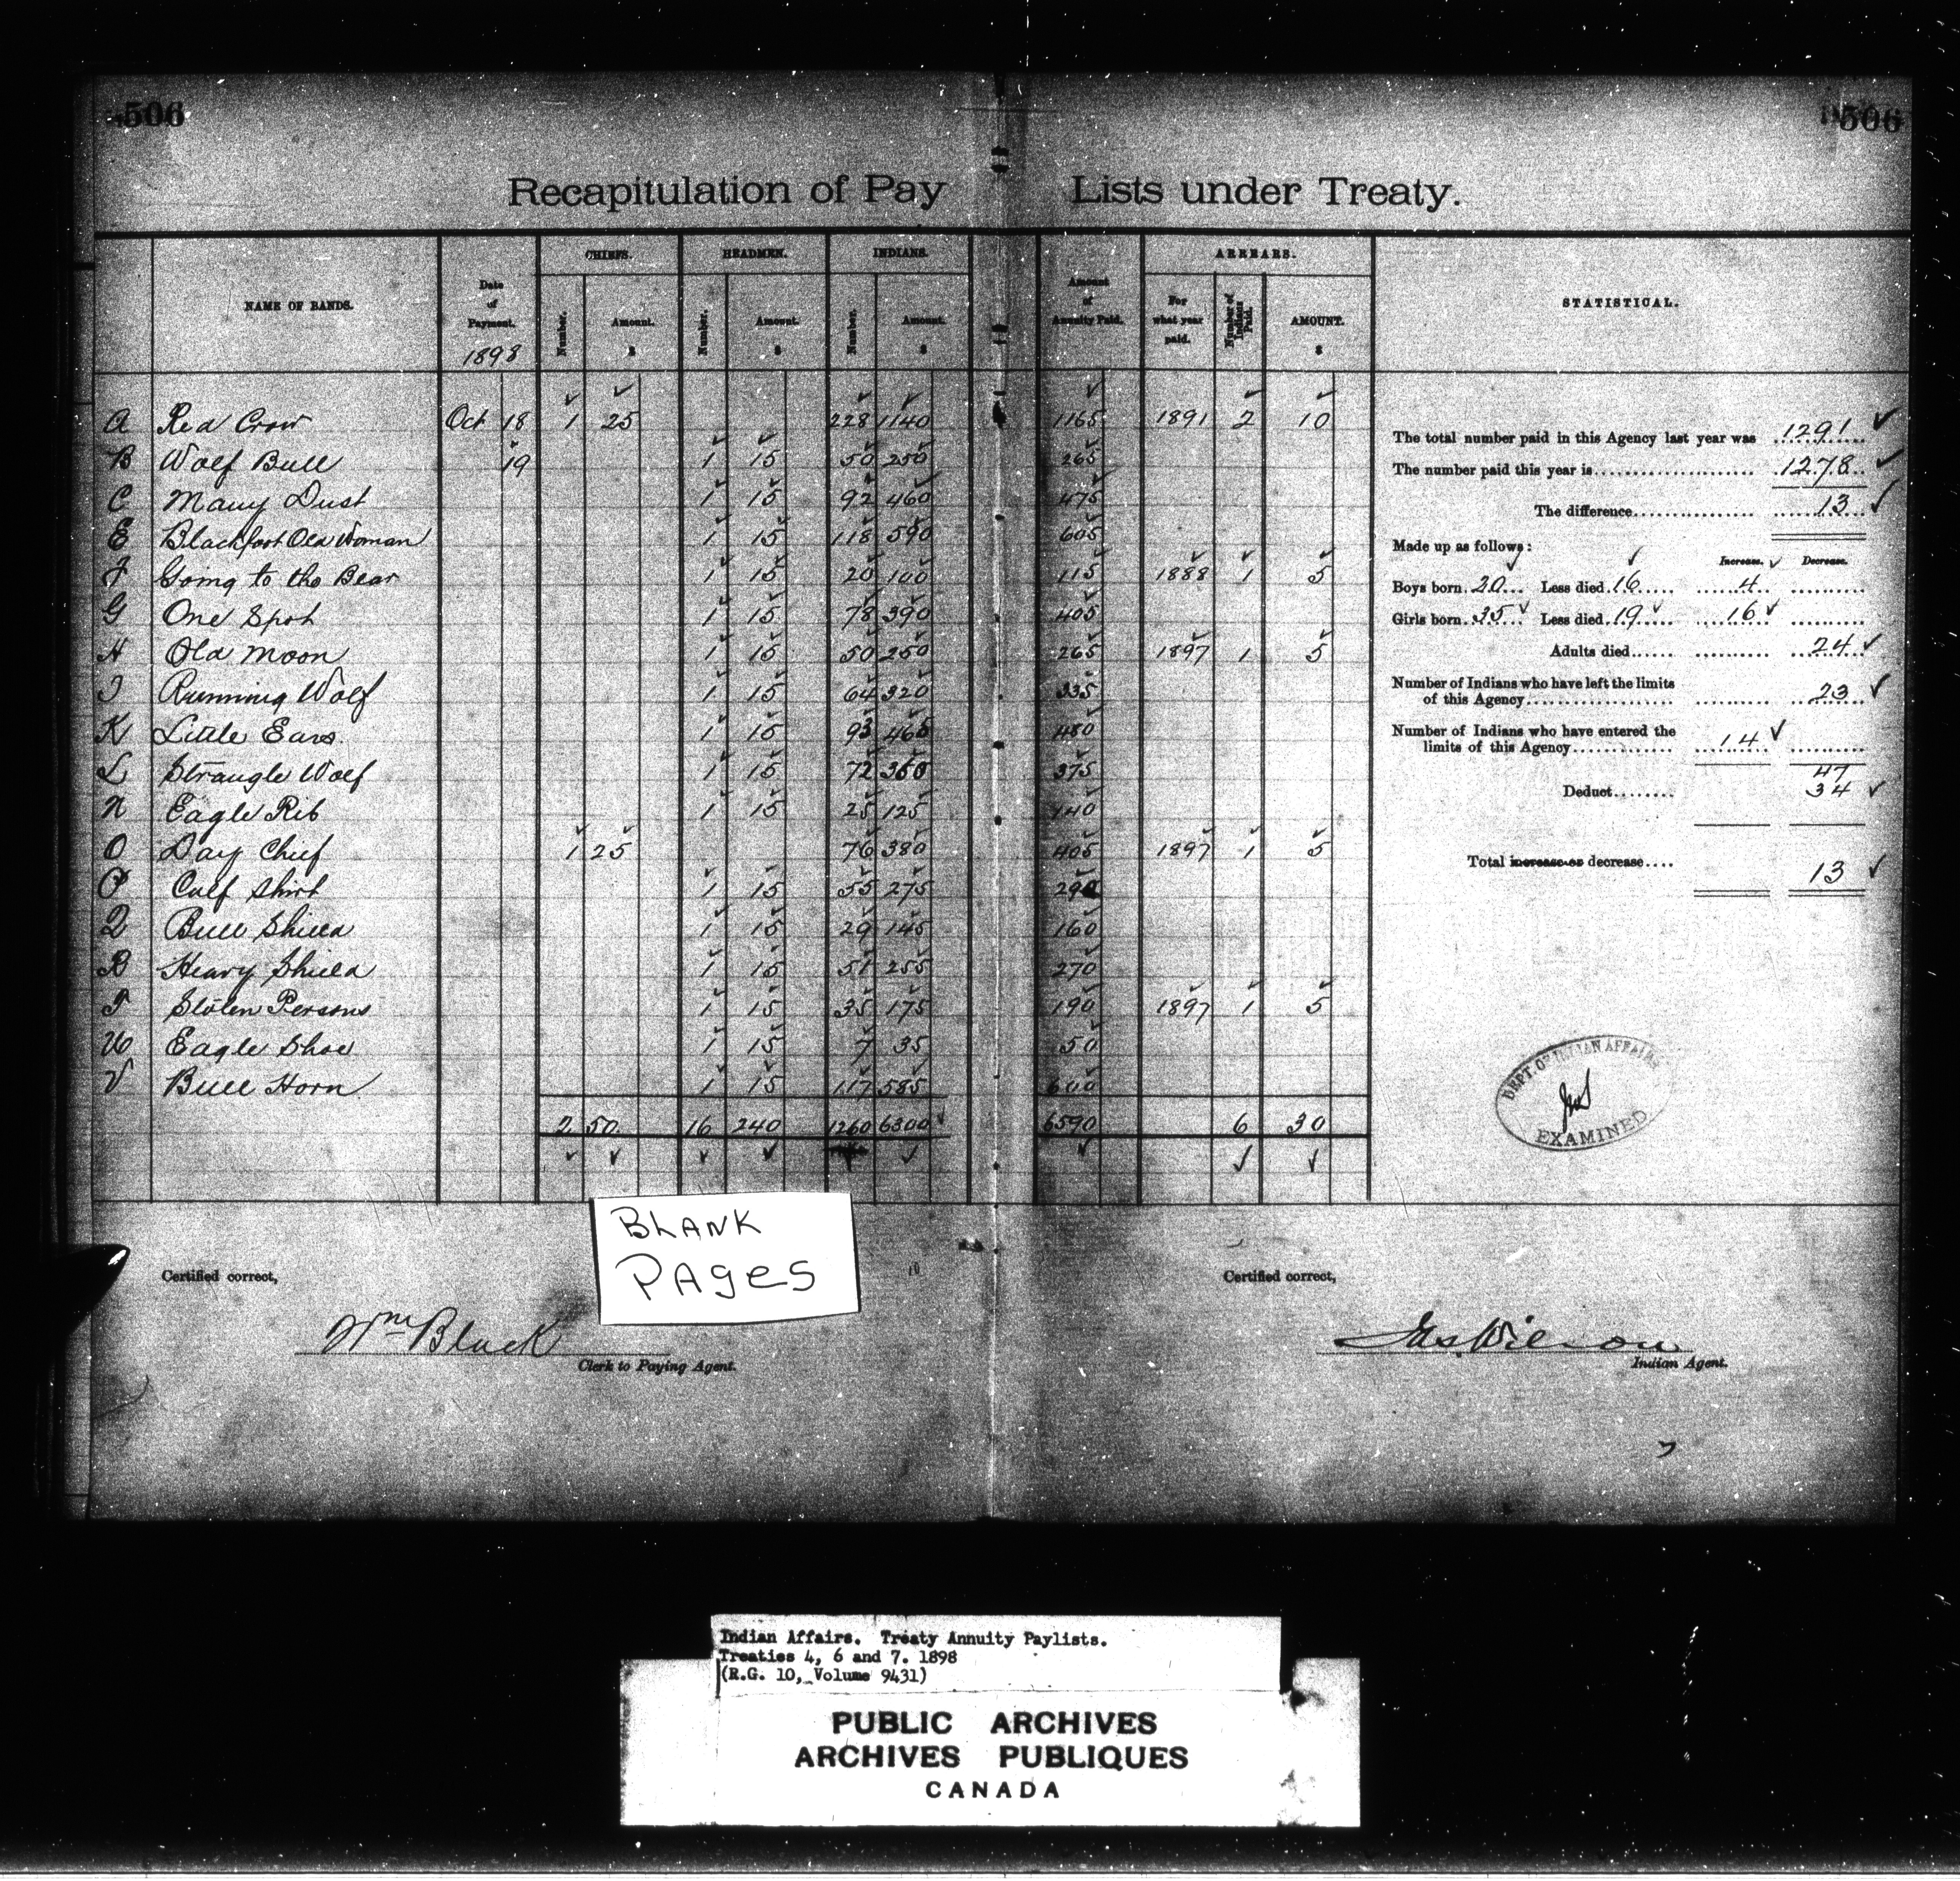 506 506
Recapitulation of Pay Lists under Treaty.
NAME OF BANDS. Date of Payment. 1898 CHIEFS. Number. Amount. $ HEADMEN. Number. Amount. $ INDIANS. Number. Amount. $ Amount of Annuity Paid. ARREARS. For what year paid. Number of Indians Paid. AMOUNT. $ STATISTICAL.
A Red Crow Oct 18 1 25 228 1140 1165 1891 2 10
B Wolf Bull 19 1 15 50 250 265
C Many Dust 1 15 92 460 475
E Blackfoot Old Woman 1 15 118 590 605
F Going to the Bear 1 15 20 100 115 1888 1 5
G One Spot 1 15 78 390 405
H Old Moon 1 15 50 250 265 1897 1 5
I Running Wolf 1 15 64 320 335
K Little Ears 1 15 93 465 480
L Strangle Wolf 1 15 72 360 375
N Eagle Rib 1 15 25 125 140
O Day Chief 1 25 76 380 405 1897 1 5
P Calf Shirt 1 15 55 275 290
Q Bull Shield 1 15 29 145 160
R Heavy Shield 1 15 51 255 270
T Stolen Persons 1 15 35 175 190 1897 1 5
U Eagle Shoe 1 15 7 35 50
V Bull Horn 1 15 117 585 600
2 50 16 240 1260 6300 6590 6 30
The total number paid in this Agency last year was 1291
The number paid this year is 1278
The difference 13
Made up as follows: Increase. Decrease.
Boys born 20 Less died 16 4
Girls born 35 Less died 19 16
Adults died 24
Number of Indians who have left the limits
of this Agency 23
Number of Indians who have entered the
limits of this Agency 14
47
Deduct 34
Total increase or decrease 13
DEPT. OF INDIAN AFFAIRS
EXAMINED
BLANK
PAGES
Certified correct,
Wm Black
Clerk to Paying Agent.
Certified correct,
Jas. Wilson
Indian Agent.
Indian Affairs. Treaty Annuity Paylists.
Treaties 4, 6 and 7. 1898
(R.G. 10, Volume 9431)
PUBLIC ARCHIVES
ARCHIVES PUBLIQUES
CANADA